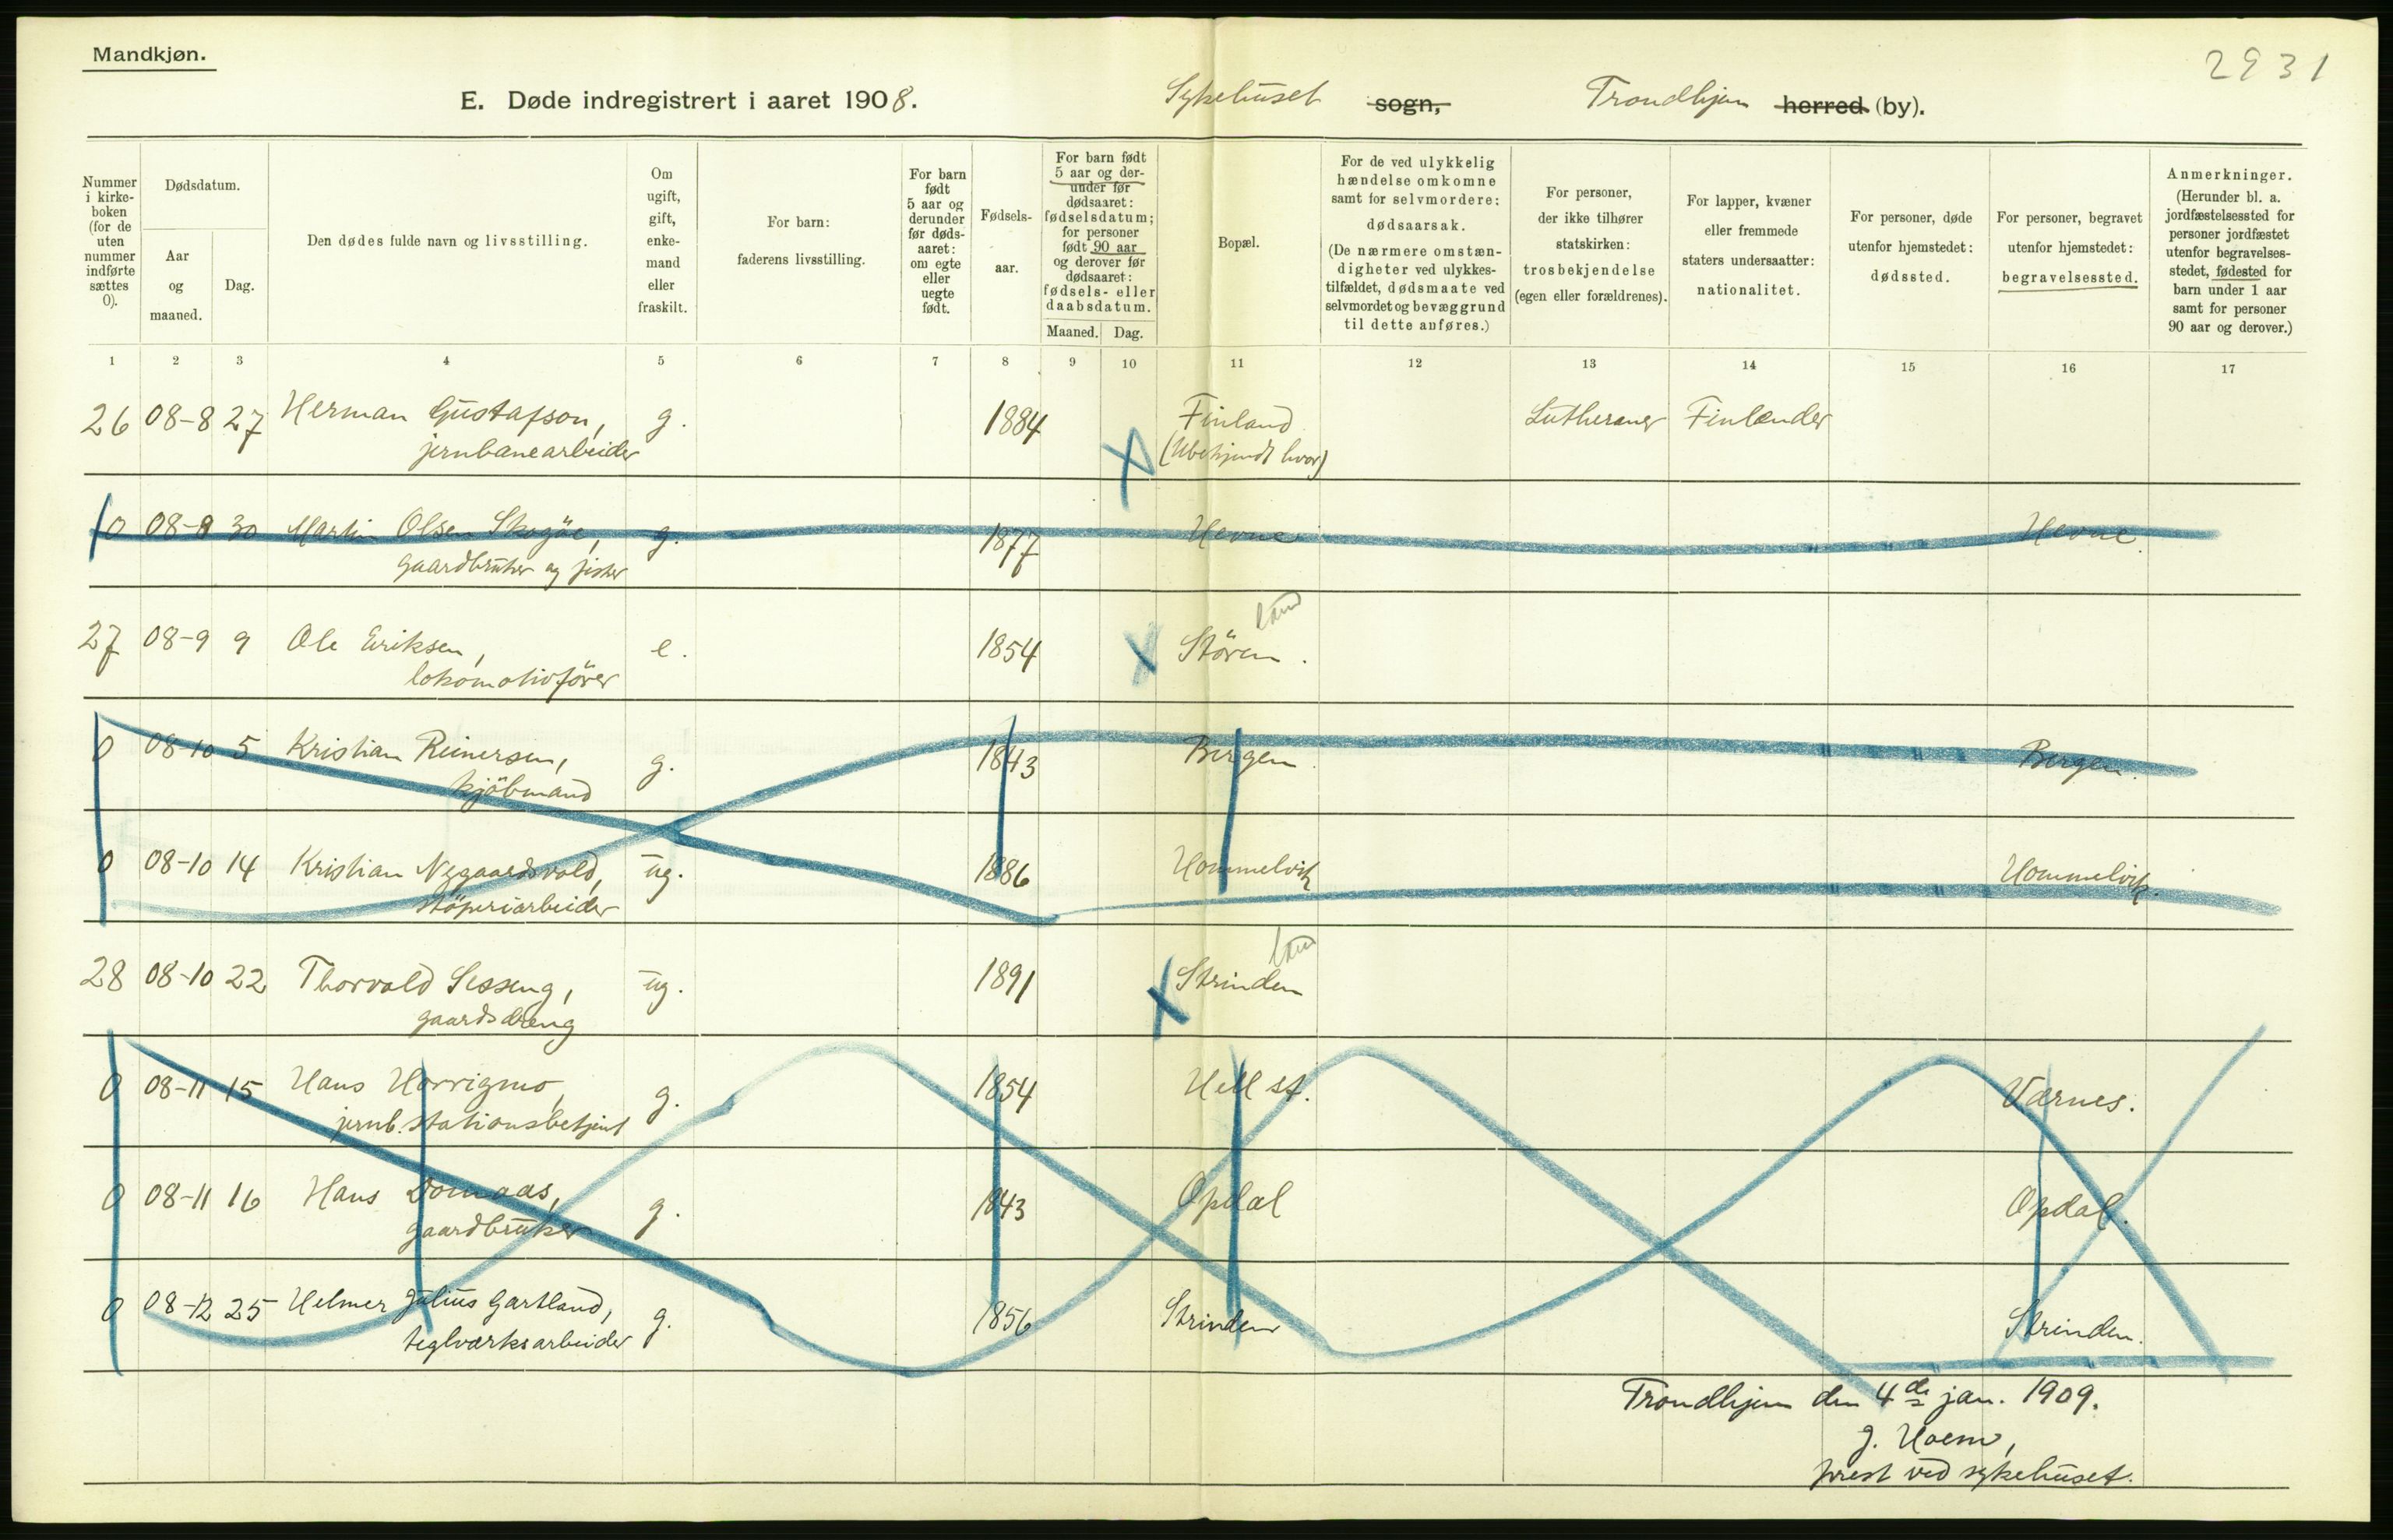 Mandkjøn.
2931
E. Døde indregistrert i aaret 1908.
Sykehuset sogn, Trondhjem herred (by).
Nummer i kirkeboken (for de uten nummer indførte sættes 0).
Dødsdatum.
Aar og maaned.
Dag.
Den dødes fulde navn og livsstilling.
Om ugift, gift, enkemand eller fraskilt.
For barn: faderens livsstilling.
For barn født 5 aar og derunder før dødsaaret: om egte eller uegte født.
Fødselsaar.
For barn født 5 aar og derunder før dødsaaret: fødselsdatum; for personer født 90 aar og derover før dødsaaret: fødsels- eller daabsdatum.
Maaned. Dag.
Bopæl.
For de ved ulykkelig hændelse omkomne samt for selvmordere: dødsaarsak. (De nærmere omstændigheter ved ulykkestilfældet, dødsmaate ved selvmordet og bevæggrund til dette anføres.)
For personer, der ikke tilhører statskirken: trosbekjendelse (egen eller forældrenes).
For lapper, kvæner eller fremmede staters undersaatter: nationalitet.
For personer, døde utenfor hjemstedet: dødssted.
For personer, begravet utenfor hjemstedet: begravelsessted.
Anmerkninger. (Herunder bl. a. jordfæstelsessted for personer jordfæstet utenfor begravelsesstedet, fødested for barn under 1 aar samt for personer 90 aar og derover.)
1 2 3 4 5 6 7 8 9 10 11 12 13 14 15 16 17
26 08-8 27 Herman Gustafson, g. 1884 Finland Lutheraner Finlænder
jernbanearbeider (Ubekjendt hvor)
0 08-8 30 Martin Olsen Skogöe, g. 1877 Hevne Hevne.
gaardbruker og fisker
land
27 08-9 9 Ole Eriksen, e. 1854 Stören.
lokomotivförer
0 08-10 5 Kristian Reinersen, g. 1843 Bergen Bergen.
kjöbmand
0 08-10 14 Kristian Nygaardsvold, ug. 1886 Hommelvik Hommelvik.
stöperiarbeider
land
28 08-10 22 Thorvald Sesseng, ug. 1891 Strinden
gaardsdreng
0 08-11 15 Hans Horrigmo, g. 1854 Hell st. Værnes.
jernb. stationsbetjent
0 08-11 16 Hans Domaas, g. 1843 Opdal Opdal.
gaardbruker
0 08-12 25 Helmer Julius Gartland, g. 1856 Strinden Strinden.
teglværksarbeider
Trondhjem den 4de jan. 1909.
J. Hoem,
prest ved sykehuset.